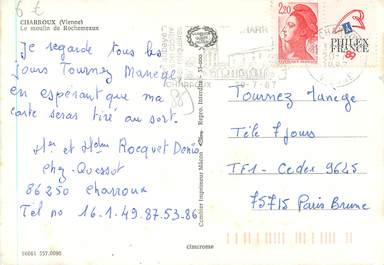 6 €
CHARROUX (Vienne)
Le moulin de Rochemeaux
Je regarde tous les
jours Tournez Manège
en espérant que ma
carte seras tiré au sort.
Mr et Helen Rocquet Denis
Chez Quessot
86250 Charroux
Tel no 16.1.49.87.53.86
(89)
CHARROUX
9-7-87
2,20
PHILEX
FRANCE
89
Tournez Manege
Télé 7 jours
TF1 - Cedex 9645
75715 Paris Brune
Combier Imprimeur Mâcon
Repro. Interdite
86061 557.0090
cimcrome